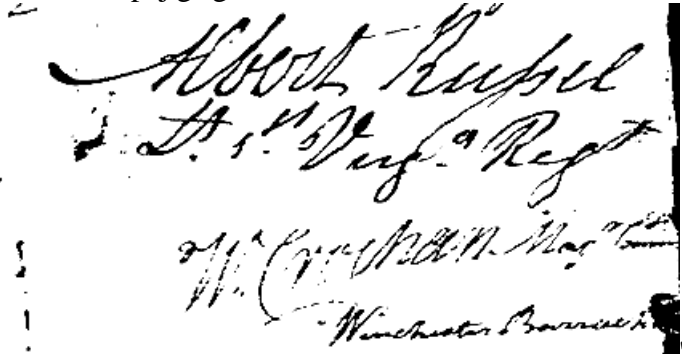 Albert Russel
Lt. 1st Virga Regt
Wm Croghan Maj
Winchester Barracks